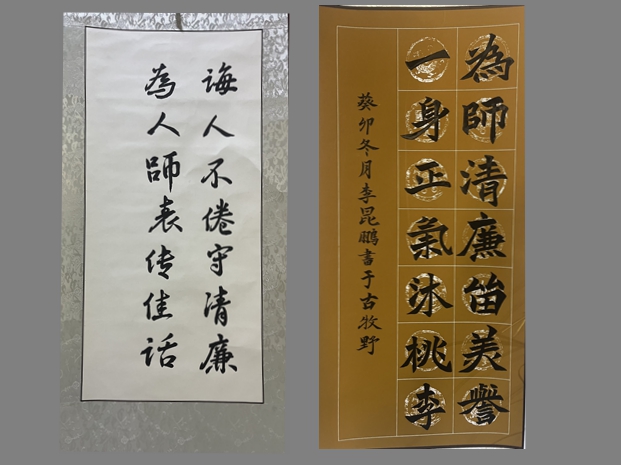 诲人不倦守清廉
為人師表传佳话
為師清廉留美譽
一身正氣沐桃李
癸卯冬月李昆鹏書于古牧野